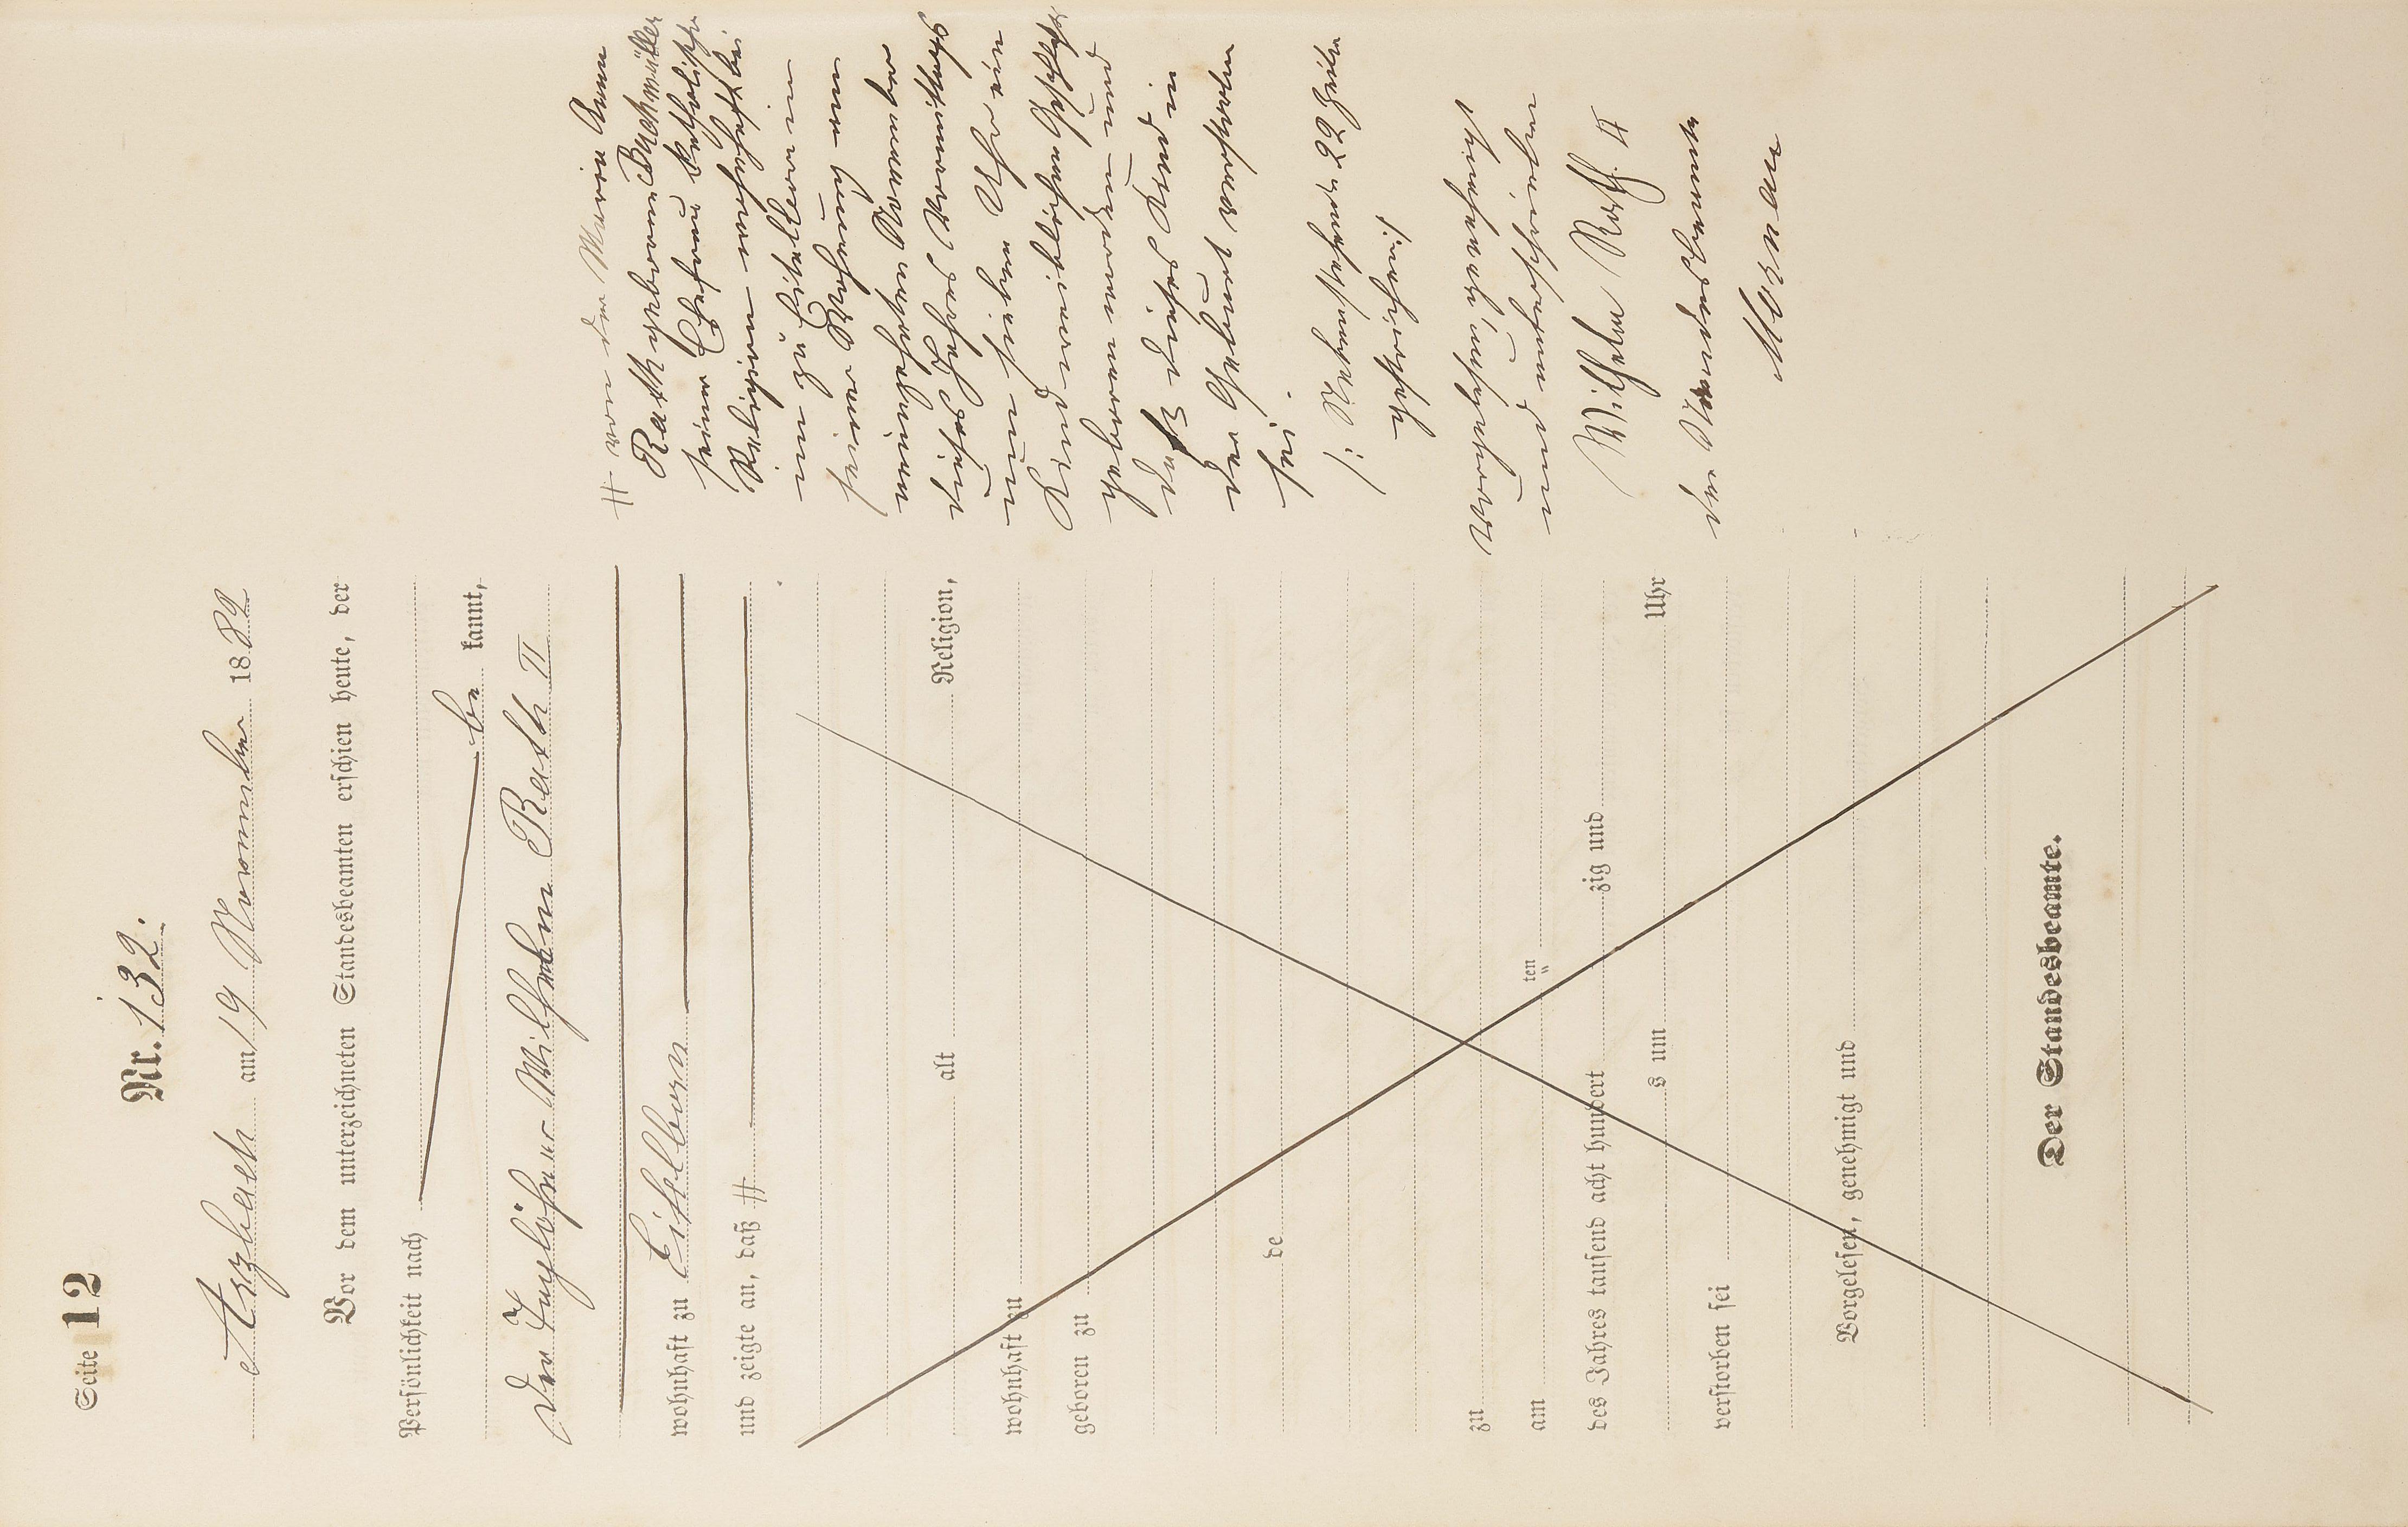 Seite 12
Nr. 132.
Arzbach am 19 November 1882
Vor dem unterzeichneten Standesbeamten erschien heute, der
Persönlichkeit nach
be kannt,
der Taglöhner Wilhelm Rath II
wohnhaft zu Eitelborn
und zeigte an, daß #
alt Religion,
wohnhaft zu
geboren zu
de
zu
am ten
des Jahres tausend acht hundert zig und
s um Uhr
verstorben sei
Vorgelesen, genehmigt und
Der Standesbeamte.
# von der Maria Anna
Rath geborene Buchmüller
seiner Ehefrau katholischer
Religion wohnhaft bei
ihm zu Eitelborn in
seiner Wohnung am
neunzehnten November
dieses Jahres Vormittags
um sieben Uhr ein
Kind weiblichen Geschlechts
geboren worden und
daß dieses Kind in
der Geburt verstorben
sei.
/: Vorstehende 22 Zeilen
gestrichen
Vorgelesen, genehmigt
und unterschrieben
Wilhelm Rath. II
der Standesbeamte